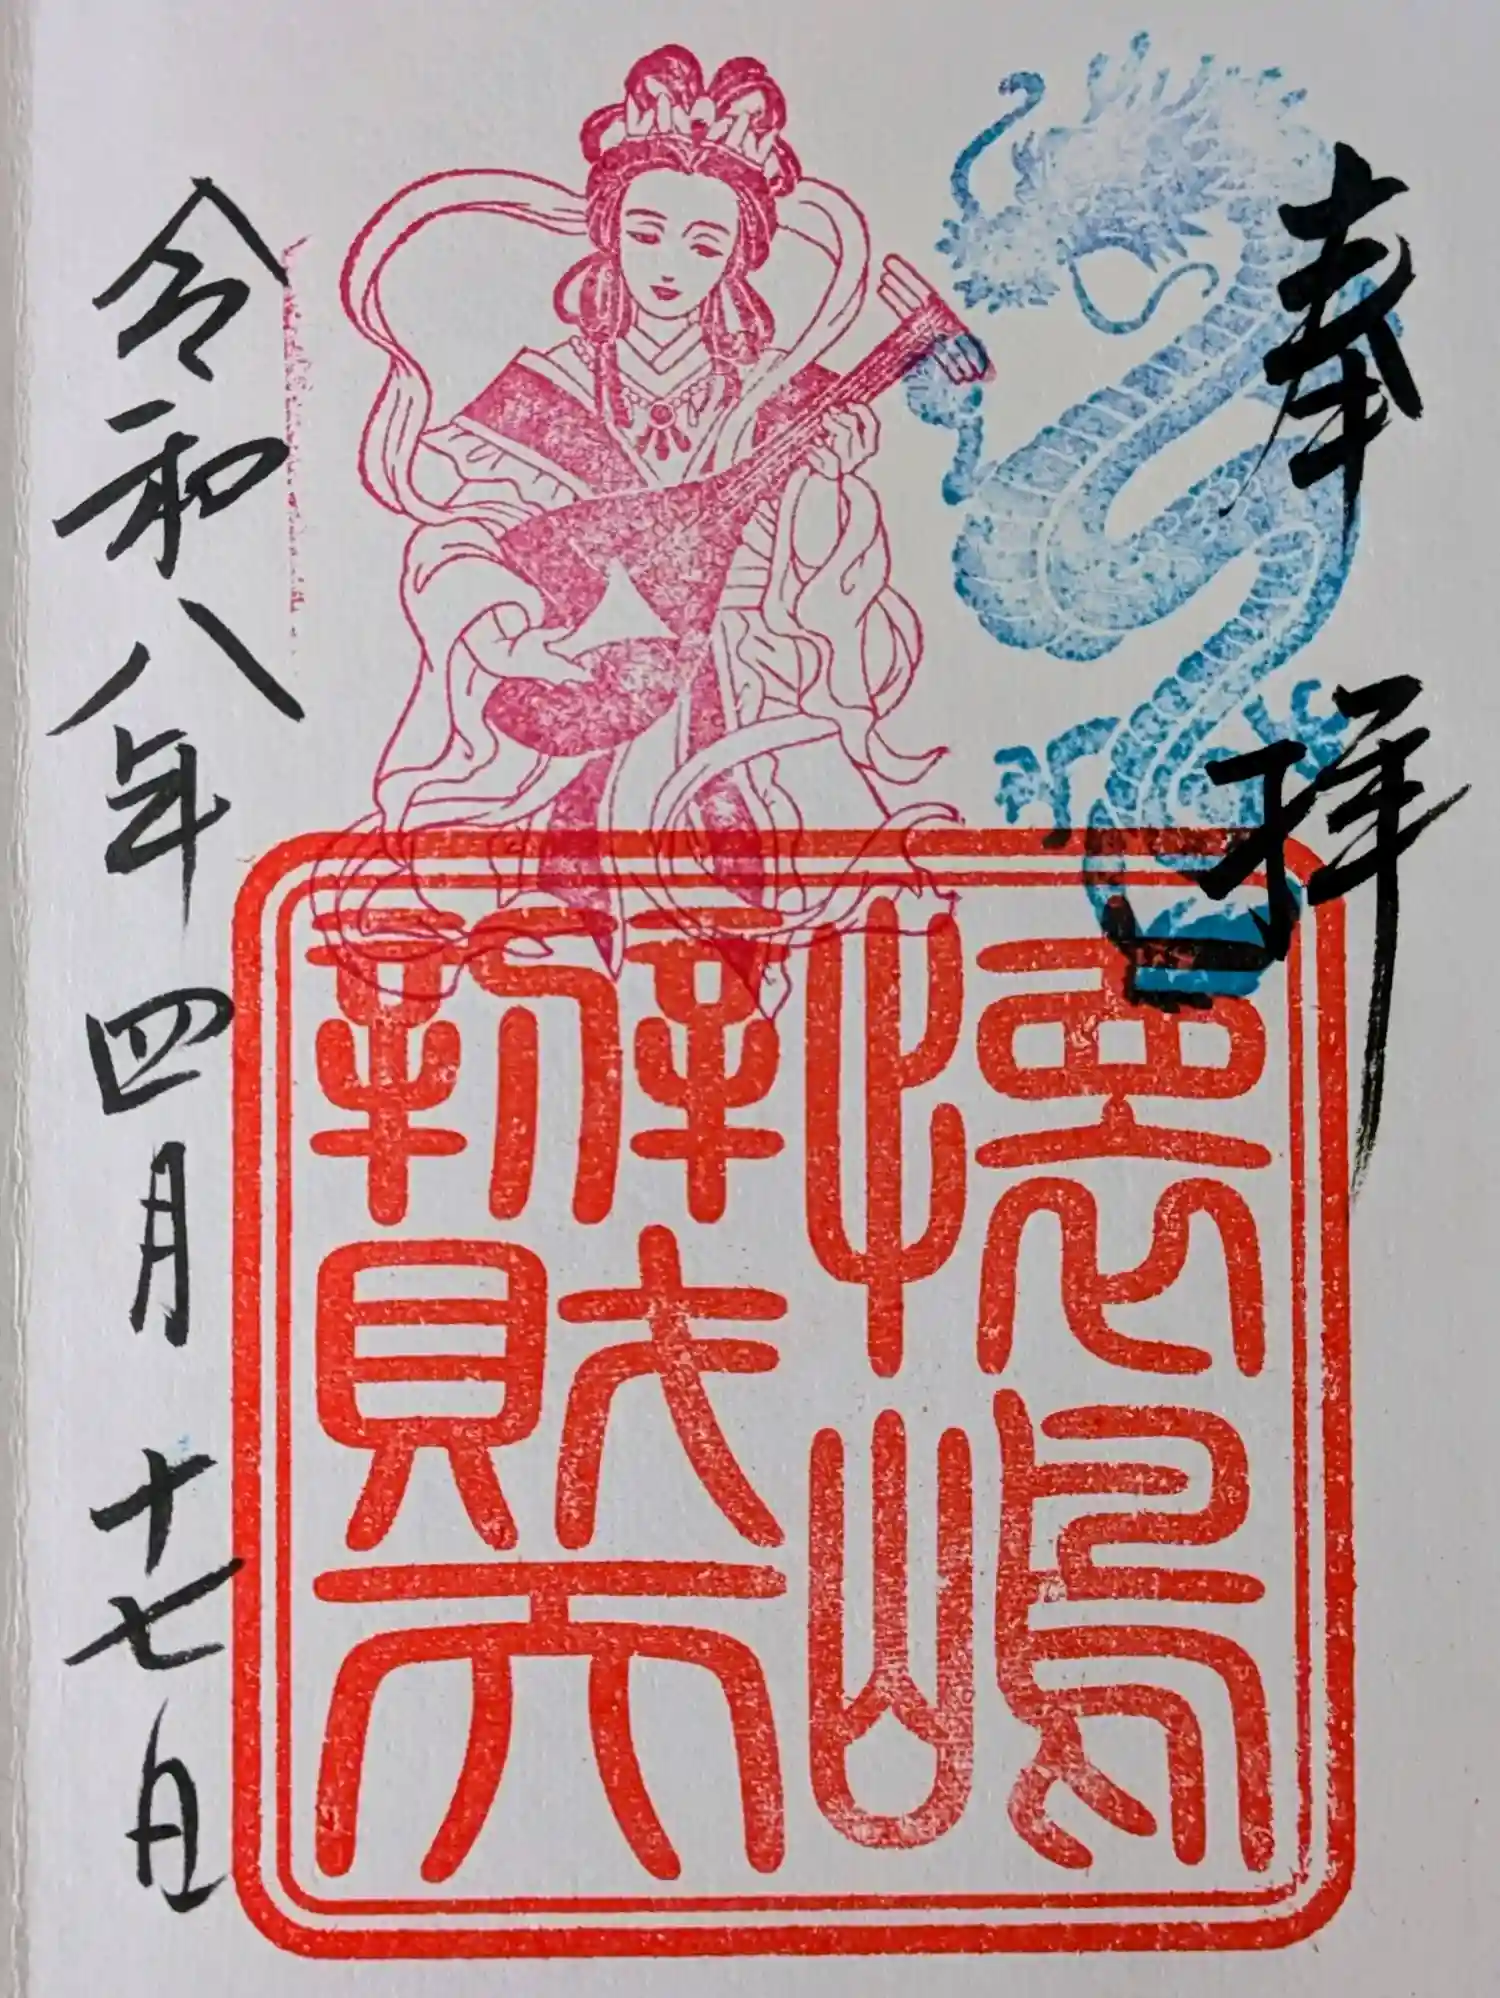 奉拝
懐嶋
辨財天
令和八年四月十七日